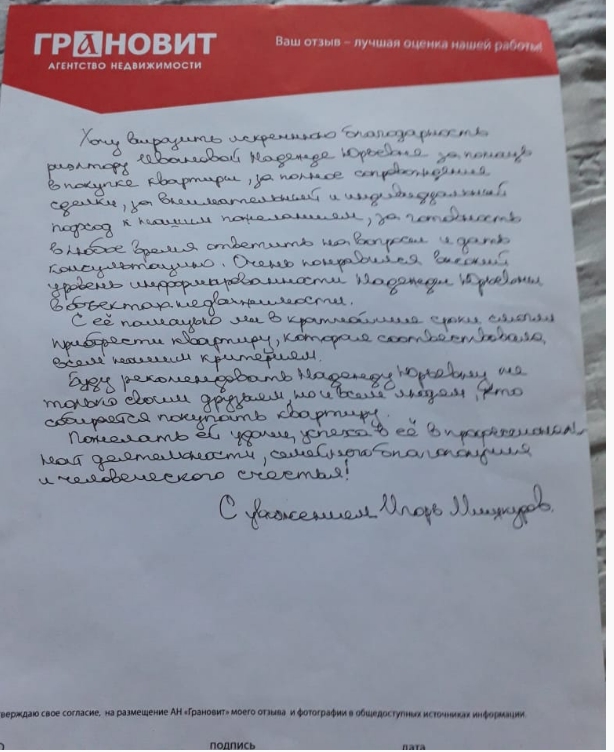 ГРАНОВИТ
АГЕНТСТВО НЕДВИЖИМОСТИ
Ваш отзыв – лучшая оценка нашей работы!
Хочу выразить искреннюю благодарность
риэлтору Ивановой Надежде Юрьевне за помощь
в покупке квартиры, за полное сопровождение
сделки, за внимательный и индивидуальный
подход к нашим пожеланиям, за готовность
в любое время ответить на вопросы и дать
консультацию. Очень понравился высокий
уровень информированности Надежды Юрьевны
в объектах недвижимости.
С её помощью мы в кратчайшие сроки смогли
приобрести квартиру, которая соответствовала
всем нашим критериям.
Буду рекомендовать Надежду Юрьевну не
только своим друзьям, но и всем людям, кто
собирается покупать квартиру.
Пожелать ей удачи, успеха в её в профессиональ
ной деятельности, семейного благополучия
и человеческого счастья!
С уважением Игорь
тверждаю свое согласие, на размещение АН «Грановит» моего отзыва и фотографии в общедоступных источниках информации
подпись
дата